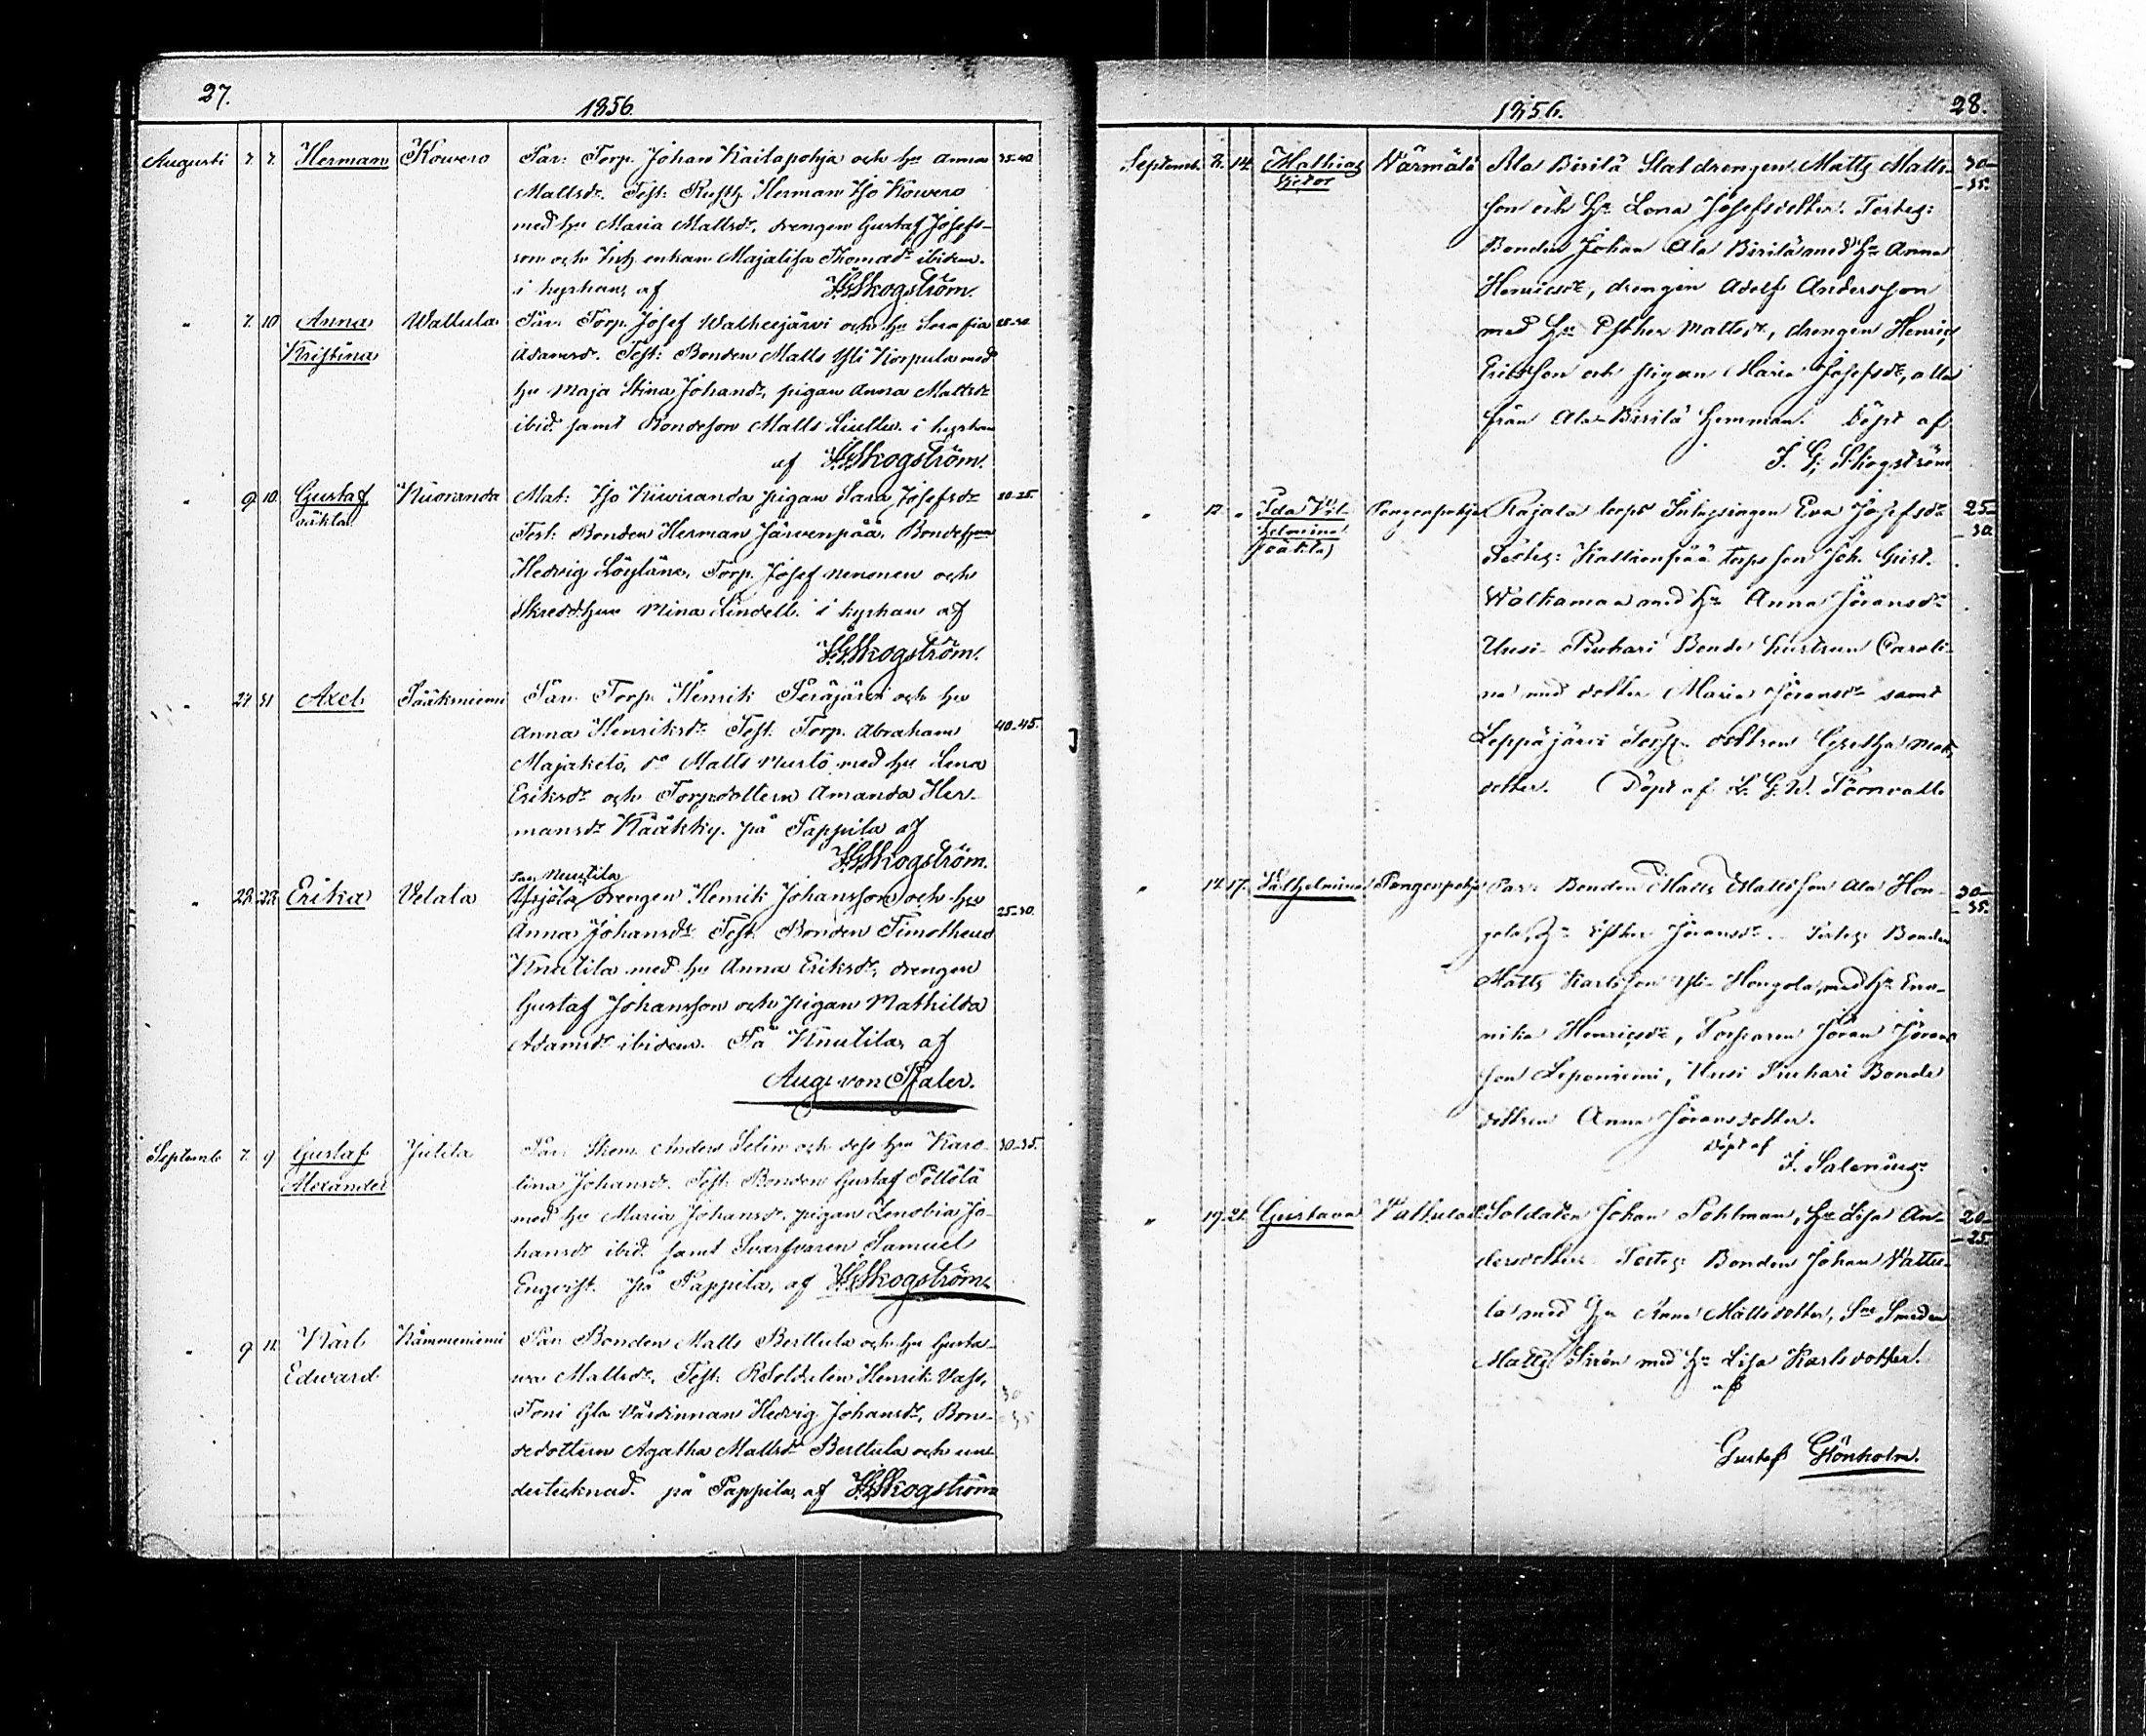 27.
1856.
Augusti 7. 7. Herman Kowero Får: Torp. Johan Kaitapohja och hu Anna 35-40.
Mattsdr. Test: Rusth. Herman Iso Kowero
med hu Maria Mattsdr, drengen Gustaf Josefs-
son och enkan Majalisa Thomasdr ibidem.
i kyrkan, af J.G.Skogström.
" 7. 10 Anna Wallula Får: Torp. Josef Walkeejärvi och hu Serafia 25-30.
Kristina Adamsdr. Test: Bonden Matts Yli Korpula med
hu Maja Stina Johansdr, pigan Anna Mattsdr
ibid. samt Bondeson Matts i kyrkan
af J.G.Skogström.
" 9 10. Gustaf Kuoranda Mat: Iso Kiwiranda pigan Sara Josefsdr 20-25.
oäkta Test: Bonden Herman Järvenpää, Bondehu
Hedvig Löyläne, Torp. Josef Nenonen och
Skreddhun Mina Lindell. i kyrkan af
J.G.Skogström.
" 27. 31 Axel Pääkniemi Får: Torp. Henrik Peräjärvi och hu
Anna Henriksdr. Test: Torp. Abraham 40-45.
Majaketo, do Matts Mustö med hu Lena
Eriksdr och Torpedottern Amanda Her-
mansdr Kääkky. på Pappila af
J.G.Skogström.
" 28. 28. Erika Velala drengen Henrik Johansson och hu 25-30.
Anna Johansdr. Test: Bonden Timotheus
Knutila med hu Anna Eriksdr, drengen
Gustaf Johansson och pigan Mathilda
Adamsdr ibidem. På Knutila, af
Aug. von Pfaler.
Septemb 7. 9 Gustaf Jutila Får: Anders Selin och dess hu Karo- 30-35.
Alexander lina Johansdr. Test: Bonden Gustaf Pöllölä
med hu Maria Johansdr, pigan Zenobia Jo-
hansdr ibid. samt Svarfvaren Samuel
Engvist. på Pappila, af J.G.Skogström
" 9 11. Karl Kämmeniemi Får: Bonden Matts Berttula och hu Gusta-
Edward. va Mattsdr. Test: RSoldaten Henrik Vast, 30
Toni Gla Värdinnan Hedvig Johansdr, Bon- -35
dedottern Agatha Mattsdr Berttula och un-
dertecknad. på Pappila, af J.G.Skogström
1856. 28.
Septemb. 12. 14. Mathias Värmälä Ala Birilä Stat drengen Matts Matts- 30-
Victor son och Hu Lena Josefsdotter. Testeg: -35.
Bonden Johan Ala Birilä med Hu Anna
Henricsdr, drengen Adolf Andersson
med Hu Esther Mattsdr, drengen Henric
Ericsson och pigan Maria Josefsdr, alla
från Ala-Birilä Hemman. Döpt af
J. G. Skogström
" 12. " Ida Vil- Pengonpohja Rajala torps Eva Josefsdr 25-
helmina Testeg: torpsson Joh. -30
(oäkta) Walkama med Hu Anna Göransdr
Uusi-Peuhari Bonde Hustrun Caroli-
na med dotter Maria Göransdr samt
Leppäjärvi dottren Gretha Matts
dotter. Döpt af K. G. W. Törnvall.
" 14. 17. Wilhelmina Pengonpohja Får: Bonden Matts Mattsson Ala Hon- 30-
gola, Hu Esther Göransdr. Testeg: Bonden -35.
Matts Karlsson Yli-Hongola, med Hu Eva-
nika Henricsdr, Torparen Göran Görans
son Leponiemi, Uusi Peuhari Bonde
dottren Anna Göransdotter.
Döpt af
J. Salenius.
" 19. 21. Gustava Vattula Soldaten Johan Pohlman, Hu Lisa An- 20-
dersdotter. Testeg: Bonden Johan Vattu- -25.
la med Hu Anna Mattsdotter, Smeden
Matts Sirén med Hu Lisa Karlsdotter.
af
Gustaf Grönholm.